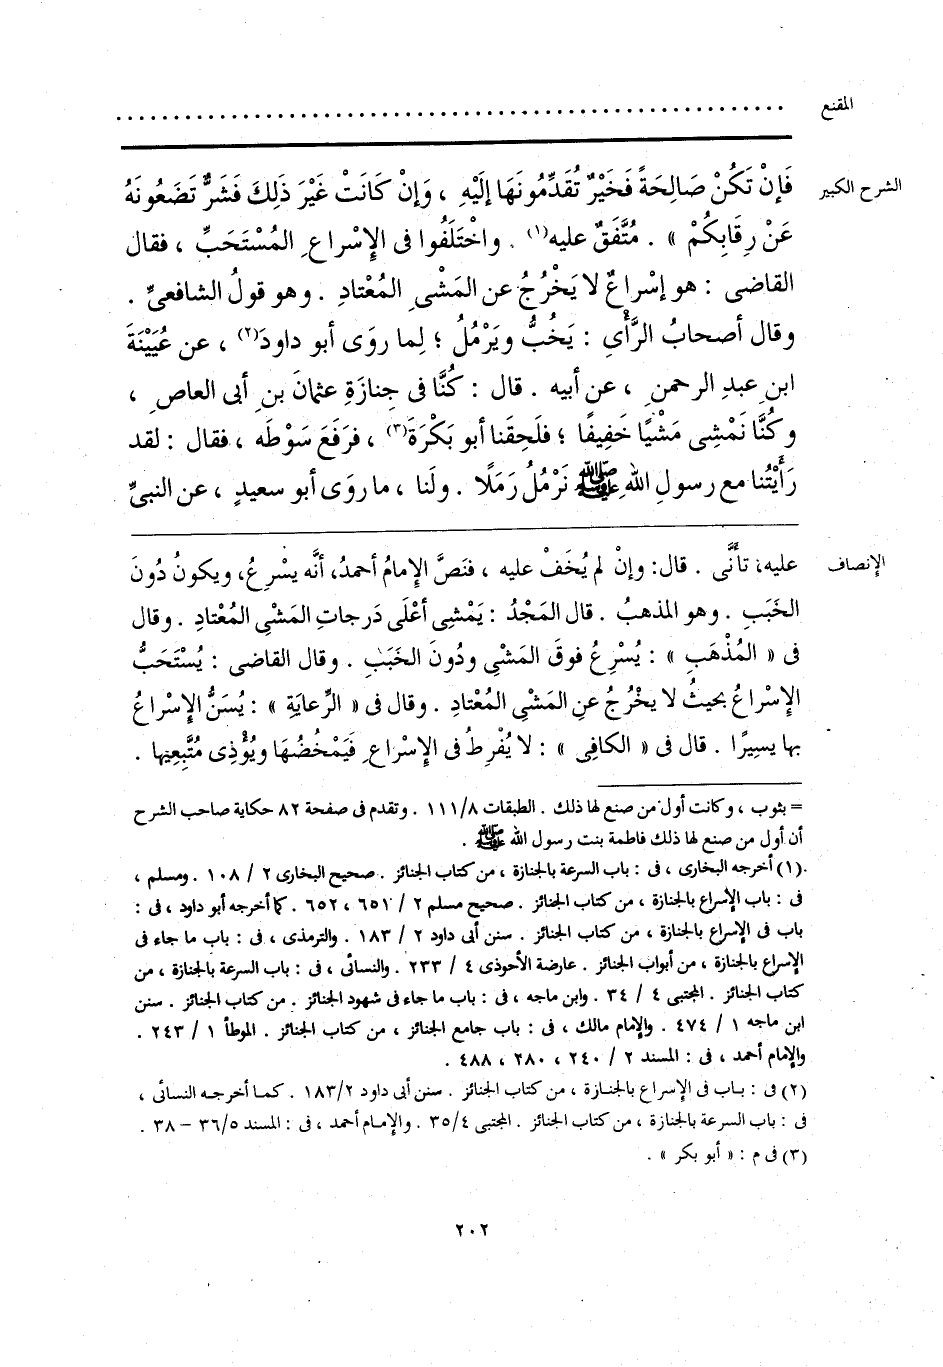 المقنع ............................................................
الشرح الكبير فَإِنْ تَكُنْ صَالِحَةً فَخَيْرٌ تُقَدِّمُونَهَا إلَيْهِ ، وَإنْ كَانَتْ غَيْرَ ذَلِكَ فَشَرٌّ تَضَعُونَهُ
عَنْ رِقَابِكُمْ » . مُتَّفَقٌ عليه(١) . واخْتَلَفُوا فى الإِسْراعِ المُسْتَحَبِّ ، فقال
القاضى : هو إسْراعٌ لا يَخْرُجُ عن المَشْىِ المُعْتادِ . وهو قولُ الشافعىِّ .
وقال أصحابُ الرَّأْىِ : يَخُبُّ ويَرْمُلُ ؛ لِما روَى أبو داودَ(٢) ، عن عُيَيْنَةَ
ابنِ عبدِ الرحمنِ ، عن أبيه . قال : كُنَّا فى جِنازَةِ عثمانَ بنِ أبى العاصِ ،
وكُنَّا نَمْشِى مَشْيًا خَفِيفًا ؛ فلَحِقَنا أبو بَكْرَةَ(٣) ، فرَفَعَ سَوْطَه ، فقال : لقد
رَأَيْتُنا مع رسولِ اللهِ ﷺ نَرْمُلُ رَمَلًا . ولَنا ، ما روَى أبو سعيدٍ ، عن النبىِّ
الإنصاف عليه، تأَنَّى . قال: وإنْ لم يُخَفْ عليه ، فنَصَّ الإمامُ أحمدُ، أنَّه يسْرِعُ، ويكونُ دُونَ
الخَبَبِ . وهو المذهبُ . قال المَجْدُ : يَمْشِى أعْلَى دَرجاتِ المَشْىِ المُعْتادِ . وقال
فى « المُذْهَبِ » : يُسْرِعُ فوقَ المَشْىِ ودُونَ الخَبَبِ . وقال القاضى : يُسْتَحَبُّ
الإِسْراعُ بحيثُ لا يخْرُجُ عنِ المَشْىِ المُعْتادِ . وقال فى « الرِّعايَةِ » : يُسَنُّ الإِسْراعُ
بها يسِيرًا . قال فى « الكافِى » : لا يُفْرِطُ فى الإسْراعِ فيَمْخُضُهَا ويُؤْذِى مُتَّبِعِيها .
= بثوب ، وكانت أول من صنع لها ذلك . الطبقات ٨/ ١١١ . وتقدم فى صفحة ٨٢ حكاية صاحب الشرح
أن أول من صنع لها ذلك فاطمة بنت رسول الله ﷺ .
(١) أخرجه البخارى ، فى : باب السرعة بالجنازة ، من كتاب الجنائز . صحيح البخارى ٢ / ١٠٨ . ومسلم ،
فى : باب الإسراع بالجنازة ، من كتاب الجنائز . صحيح مسلم ٢ / ٦٥١ ، ٦٥٢ . كما أخرجه أبو داود ، فى :
باب فى الإسراع بالجنازة ، من كتاب الجنائز . سنن أبى داود ٢ / ١٨٣ . والترمذى ، فى : باب ما جاء فى
الإسراع بالجنازة ، من أبواب الجنائز . عارضة الأحوذى ٤ / ٢٣٣ . والنسائى ، فى : باب السرعة بالجنازة ، من
كتاب الجنائز . المجتبى ٤ / ٣٤ . وابن ماجه ، فى : باب ما جاء فى شهود الجنائز . من كتاب الجنائز . سنن
ابن ماجه ١ / ٤٧٤ . والإمام مالك ، فى : باب جامع الجنائز ، من كتاب الجنائز . الموطأ ١ / ٢٤٣ .
والإمام أحمد ، فى : المسند ٢ / ٢٤٠ ، ٢٨٠ ، ٤٨٨ .
(٢) فى : باب فى الإسراع بالجنازة ، من كتاب الجنائز . سنن أبى داود ١٨٣/٢ . كما أخرجه النسائى ،
فى : باب السرعة بالجنازة ، من كتاب الجنائز . المجتبى ٣٥/٤ . والإمام أحمد ، فى : المسند ٣٦/٥ – ٣٨ .
(٣) فى م : « أبو بكر » .
٢٠٢